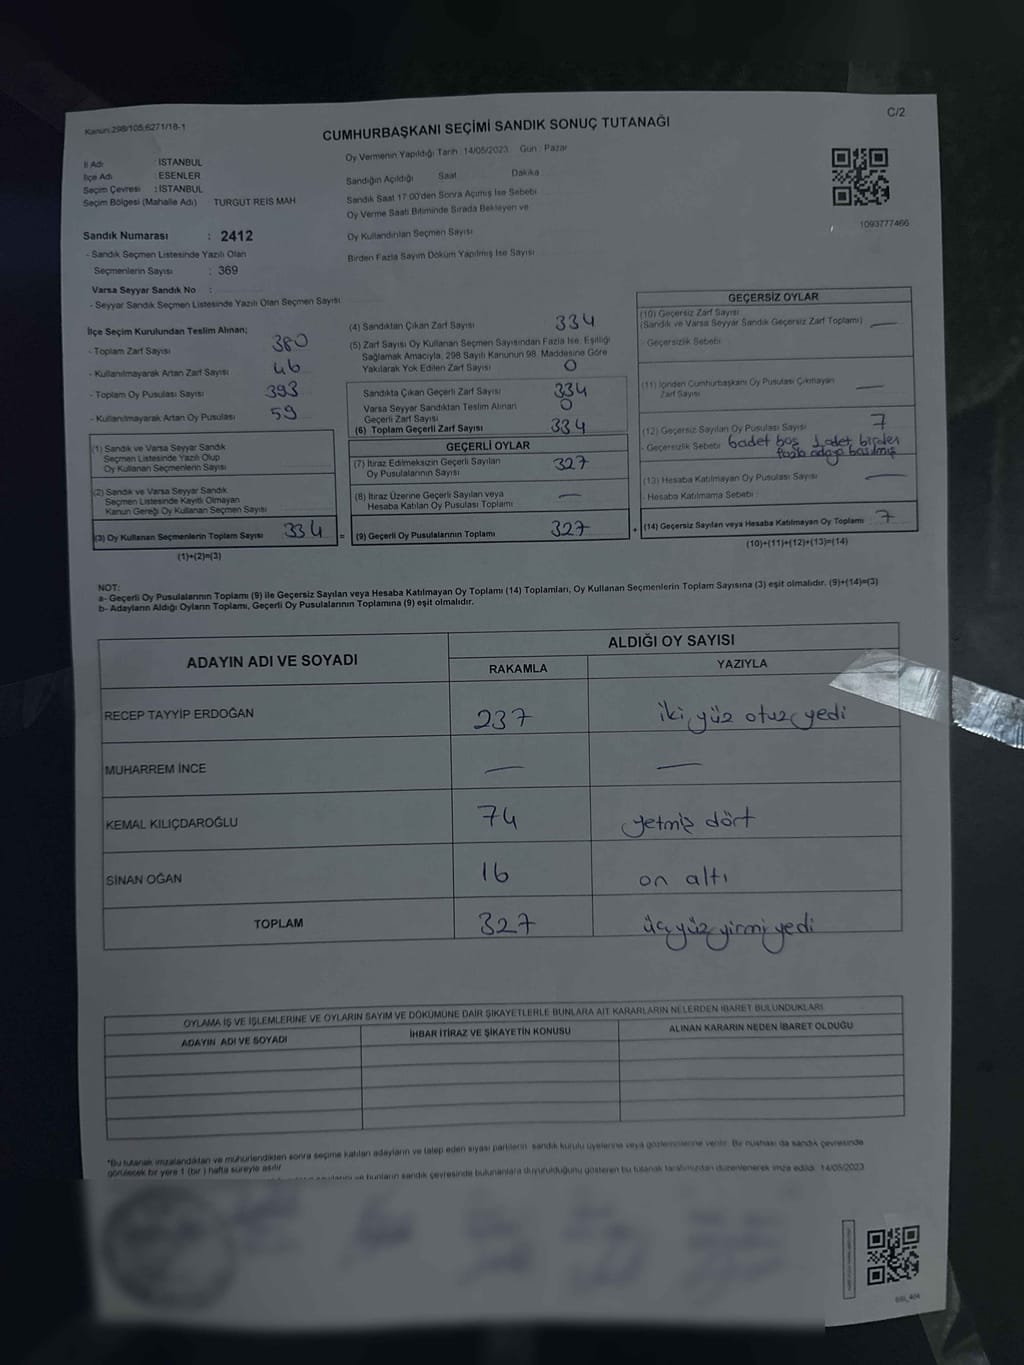 Kanun:298/105;6271/18-1
C/2
CUMHURBAŞKANI SEÇİMİ SANDIK SONUÇ TUTANAĞI
İl Adı : İSTANBUL
İlçe Adı : ESENLER
Seçim Çevresi : İSTANBUL
Seçim Bölgesi (Mahalle Adı) TURGUT REİS MAH
Oy Vermenin Yapıldığı Tarih : 14/05/2023 Gün : Pazar
Sandığın Açıldığı Saat Dakika
Sandık Saat 17:00'den Sonra Açılmış İse Sebebi
Oy Verme Saati Bitiminde Sırada Bekleyen ve
Oy Kullandırılan Seçmen Sayısı
Birden Fazla Sayım Döküm Yapılmış İse Sayısı
1093777466
Sandık Numarası : 2412
- Sandık Seçmen Listesinde Yazılı Olan
Seçmenlerin Sayısı : 369
Varsa Seyyar Sandık No :
- Seyyar Sandık Seçmen Listesinde Yazılı Olan Seçmen Sayısı
İlçe Seçim Kurulundan Teslim Alınan;
- Toplam Zarf Sayısı 380
- Kullanılmayarak Artan Zarf Sayısı 46
- Toplam Oy Pusulası Sayısı 393
- Kullanılmayarak Artan Oy Pusulası 59
(1) Sandık ve Varsa Seyyar Sandık
Seçmen Listesinde Yazılı Olup
Oy Kullanan Seçmenlerin Sayısı
(2) Sandık ve Varsa Seyyar Sandık
Seçmen Listesinde Kayıtlı Olmayan
Kanun Gereği Oy Kullanan Seçmen Sayısı
(3) Oy Kullanan Seçmenlerin Toplam Sayısı 334 =
(1)+(2)=(3)
(4) Sandıktan Çıkan Zarf Sayısı 334
(5) Zarf Sayısı Oy Kullanan Seçmen Sayısından Fazla İse, Eşitliği
Sağlamak Amacıyla, 298 Sayılı Kanunun 98. Maddesine Göre
Yakılarak Yok Edilen Zarf Sayısı 0
Sandıkta Çıkan Geçerli Zarf Sayısı 334
Varsa Seyyar Sandıktan Teslim Alınan
Geçerli Zarf Sayısı 0
(6) Toplam Geçerli Zarf Sayısı 334
GEÇERLİ OYLAR
(7) İtiraz Edilmeksizin Geçerli Sayılan
Oy Pusulalarının Sayısı 327
(8) İtiraz Üzerine Geçerli Sayılan veya
Hesaba Katılan Oy Pusulası Toplamı —
(9) Geçerli Oy Pusulalarının Toplamı 327 +
GEÇERSİZ OYLAR
(10) Geçersiz Zarf Sayısı
(Sandık ve Varsa Seyyar Sandık Geçersiz Zarf Toplamı) —
- Geçersizlik Sebebi
(11) İçinden Cumhurbaşkanı Oy Pusulası Çıkmayan
Zarf Sayısı —
(12) Geçersiz Sayılan Oy Pusulası Sayısı 7
- Geçersizlik Sebebi 6adet boş 1 adet birden
fazla adaya basılmış
(13) Hesaba Katılmayan Oy Pusulası Sayısı —
- Hesaba Katılmama Sebebi
(14) Geçersiz Sayılan veya Hesaba Katılmayan Oy Toplamı 7
(10)+(11)+(12)+(13)=(14)
NOT:
a- Geçerli Oy Pusulalarının Toplamı (9) ile Geçersiz Sayılan veya Hesaba Katılmayan Oy Toplamı (14) Toplamları, Oy Kullanan Seçmenlerin Toplam Sayısına (3) eşit olmalıdır. (9)+(14)=(3)
b- Adayların Aldığı Oyların Toplamı, Geçerli Oy Pusulalarının Toplamına (9) eşit olmalıdır.
ADAYIN ADI VE SOYADI
ALDIĞI OY SAYISI
RAKAMLA YAZIYLA
RECEP TAYYİP ERDOĞAN 237 iki yüz otuz yedi
MUHARREM İNCE — —
KEMAL KILIÇDAROĞLU 74 yetmiş dört
SİNAN OĞAN 16 on altı
TOPLAM 327 üç yüz yirmi yedi
OYLAMA İŞ VE İŞLEMLERİNE VE OYLARIN SAYIM VE DÖKÜMÜNE DAİR ŞİKAYETLERLE BUNLARA AİT KARARLARIN NELERDEN İBARET BULUNDUKLARI
ADAYIN ADI VE SOYADI İHBAR İTİRAZ VE ŞİKAYETİN KONUSU ALINAN KARARIN NEDEN İBARET OLDUĞU
*Bu tutanak imzalandıktan ve mühürlendikten sonra seçime katılan adayların ve talep eden siyasi partilerin sandık kurulu üyelerine veya gözlemcilerine verilir. Bir nüshası da sandık çevresinde
görülecek bir yere 1 (bir ) hafta süreyle asılır.
ve bunların sandık çevresinde bulunanlara duyurulduğunu gösteren bu tutanak tarafımızdan düzenlenerek imza edildi. 14/05/2023